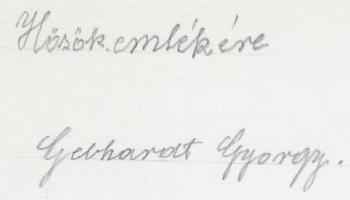 Hősök emlékére
Gebhardt György.